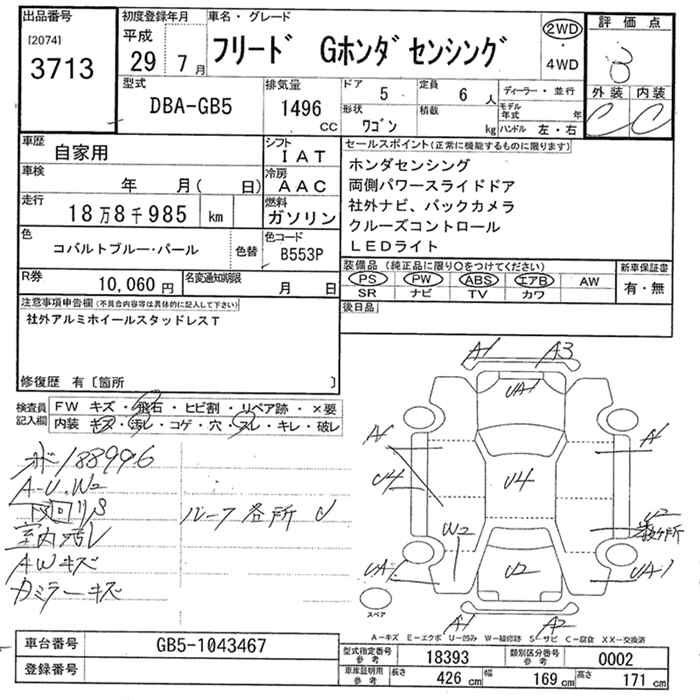 出品番号
[2074]
3713
初度登録年月
平成
29 7月
車名・グレード
フリード Gホンダセンシング
2WD
・
4WD
評価点
外装 内装
C C
型式
DBA-GB5
排気量
1496
cc
ドア
5
定員
6 人
形状
ワゴン
積載
kg
ディーラー・並行
モデル年式 年
ハンドル 左・右
車歴
自家用
シフト
IAT
車検
年 月( 日)
冷房
AAC
走行
18万8千985 km
燃料
ガソリン
色
コバルトブルー・パール
色替
色コード
B553P
R券
10,060円
名変通知期限
月 日
セールスポイント(正常に機能するものに限ります)
ホンダセンシング
両側パワースライドドア
社外ナビ、バックカメラ
クルーズコントロール
LEDライト
装備品 (純正品に限り○をつけてください)
PS PW ABS エアB AW
SR ナビ TV カワ
新車保証書
有・無
後日品
注意事項申告欄(不具合内容等は具体的に記入して下さい)
社外アルミホイールスタッドレスT
修復歴 有〔箇所 〕
検査員記入欄
FW キズ・飛石・ヒビ割・リペア跡・×要
内装 キズ・汚レ・コゲ・穴・スレ・キレ・破レ
188996
A-U.W2
下回リS
室内汚レ
AWキズ
カミラーキズ
ルーフ各所 U
A1 A3
UA1
A1
U4
U4
W2
UA-1
U2
UA-1
A1 A2
スペア
A-キズ E-エクボ U-凹み W-補修跡 S-サビ C-腐食 XX-交換済
車台番号
GB5-1043467
登録番号
型式指定番号 参考
18393
類別区分番号 参考
0002
車庫証明用 参考
長さ 426 cm 幅 169 cm 高さ 171 cm